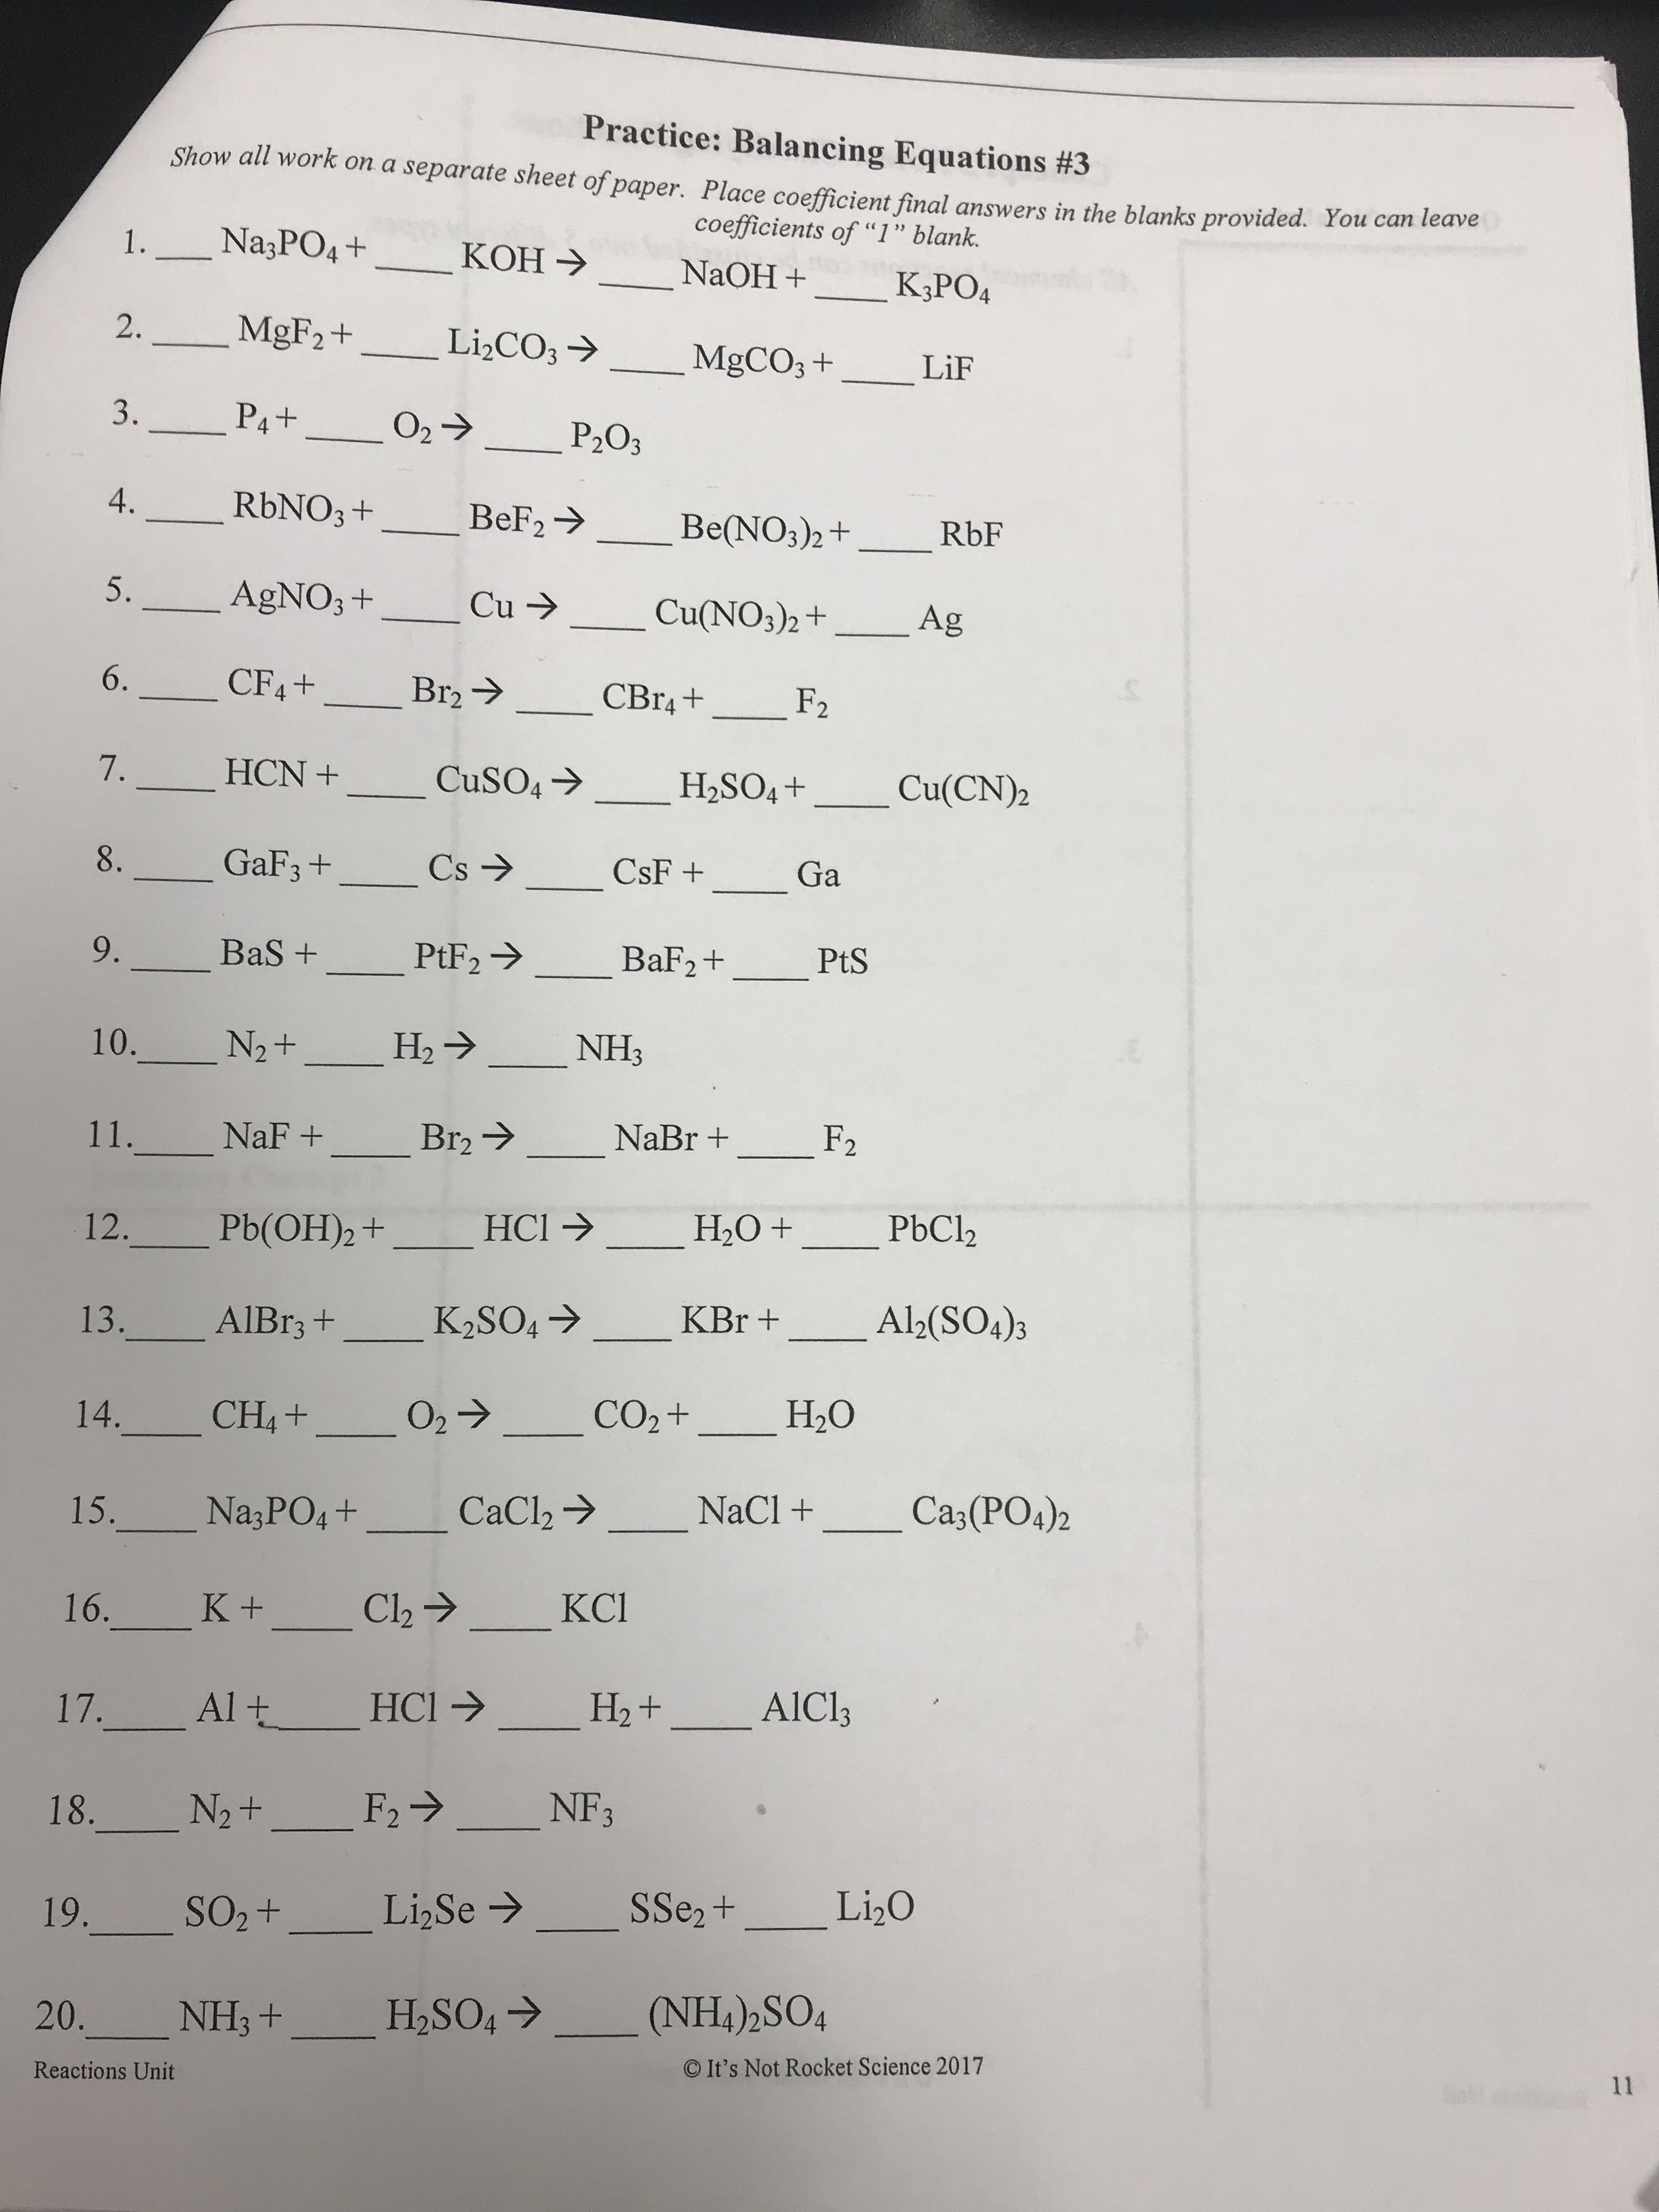 Practice: Balancing Equations #3
Show all work on a separate sheet of paper. Place coefficient final answers in the blanks provided. You can leave
coefficients of “1” blank.
1. ___ Na₃PO₄ + ____ KOH → ____ NaOH + ____ K₃PO₄
2. ____ MgF₂ + ____ Li₂CO₃ → ____ MgCO₃ + ____ LiF
3. ____ P₄ + ____ O₂ → ____ P₂O₃
4. ____ RbNO₃ + ____ BeF₂ → ____ Be(NO₃)₂ + ____ RbF
5. ____ AgNO₃ + ____ Cu → ____ Cu(NO₃)₂ + ____ Ag
6. ____ CF₄ + ____ Br₂ → ____ CBr₄ + ____ F₂
7. ____ HCN + ____ CuSO₄ → ____ H₂SO₄ + ____ Cu(CN)₂
8. ____ GaF₃ + ____ Cs → ____ CsF + ____ Ga
9. ____ BaS + ____ PtF₂ → ____ BaF₂ + ____ PtS
10.____ N₂ + ____ H₂ → ____ NH₃
11.____ NaF + ____ Br₂ → ____ NaBr + ____ F₂
12.____ Pb(OH)₂ + ____ HCl → ____ H₂O + ____ PbCl₂
13.____ AlBr₃ + ____ K₂SO₄ → ____ KBr + ____ Al₂(SO₄)₃
14.____ CH₄ + ____ O₂ → ____ CO₂ + ____ H₂O
15.____ Na₃PO₄ + ____ CaCl₂ → ____ NaCl + ____ Ca₃(PO₄)₂
16.____ K + ____ Cl₂ → ____ KCl
17.____ Al + ____ HCl → ____ H₂ + ____ AlCl₃
18.____ N₂ + ____ F₂ → ____ NF₃
19.____ SO₂ + ____ Li₂Se → ____ SSe₂ + ____ Li₂O
20.____ NH₃ + ____ H₂SO₄ → ____ (NH₄)₂SO₄
Reactions Unit © It’s Not Rocket Science 2017 11